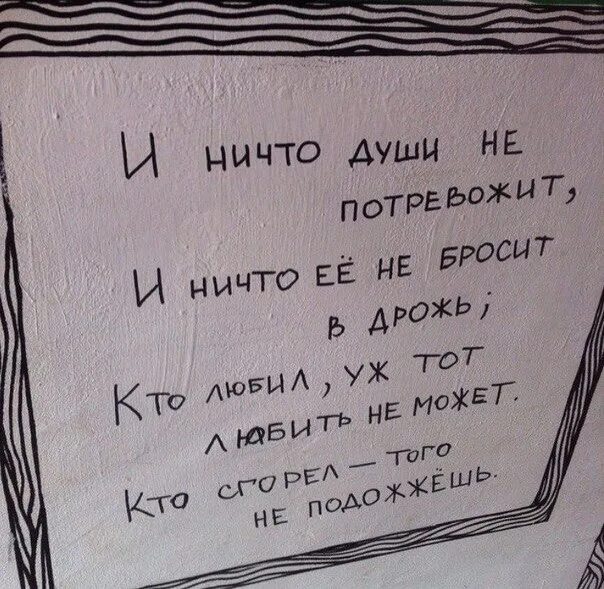 И ничто души не
потревожит,
И ничто её не бросит
в дрожь;
Кто любил, уж тот
любить не может.
Кто сгорел — того
не подожжёшь.